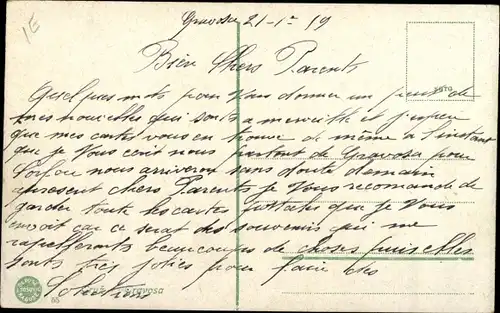 1E
Gravosa 21-1-19
Bien Chers Parents
Quelques mots pour vous donner un peut de
mes nouvelles qui sont a merveille et j'espere
que mes cartes vous en trouve de même a l'instant
que je vous ecrit nous partont de Gravosa pour
Corfou nous arriveron sans doute demain
apresent chers Parents je vous recomande de
garder toute les cartes postales que je vous
envoit car ce serat des souvenirs qui me
rapelleronts beaucoups de choses puis elles
sonts très jolies pour faire des
Colections
1970
66
Gravosa